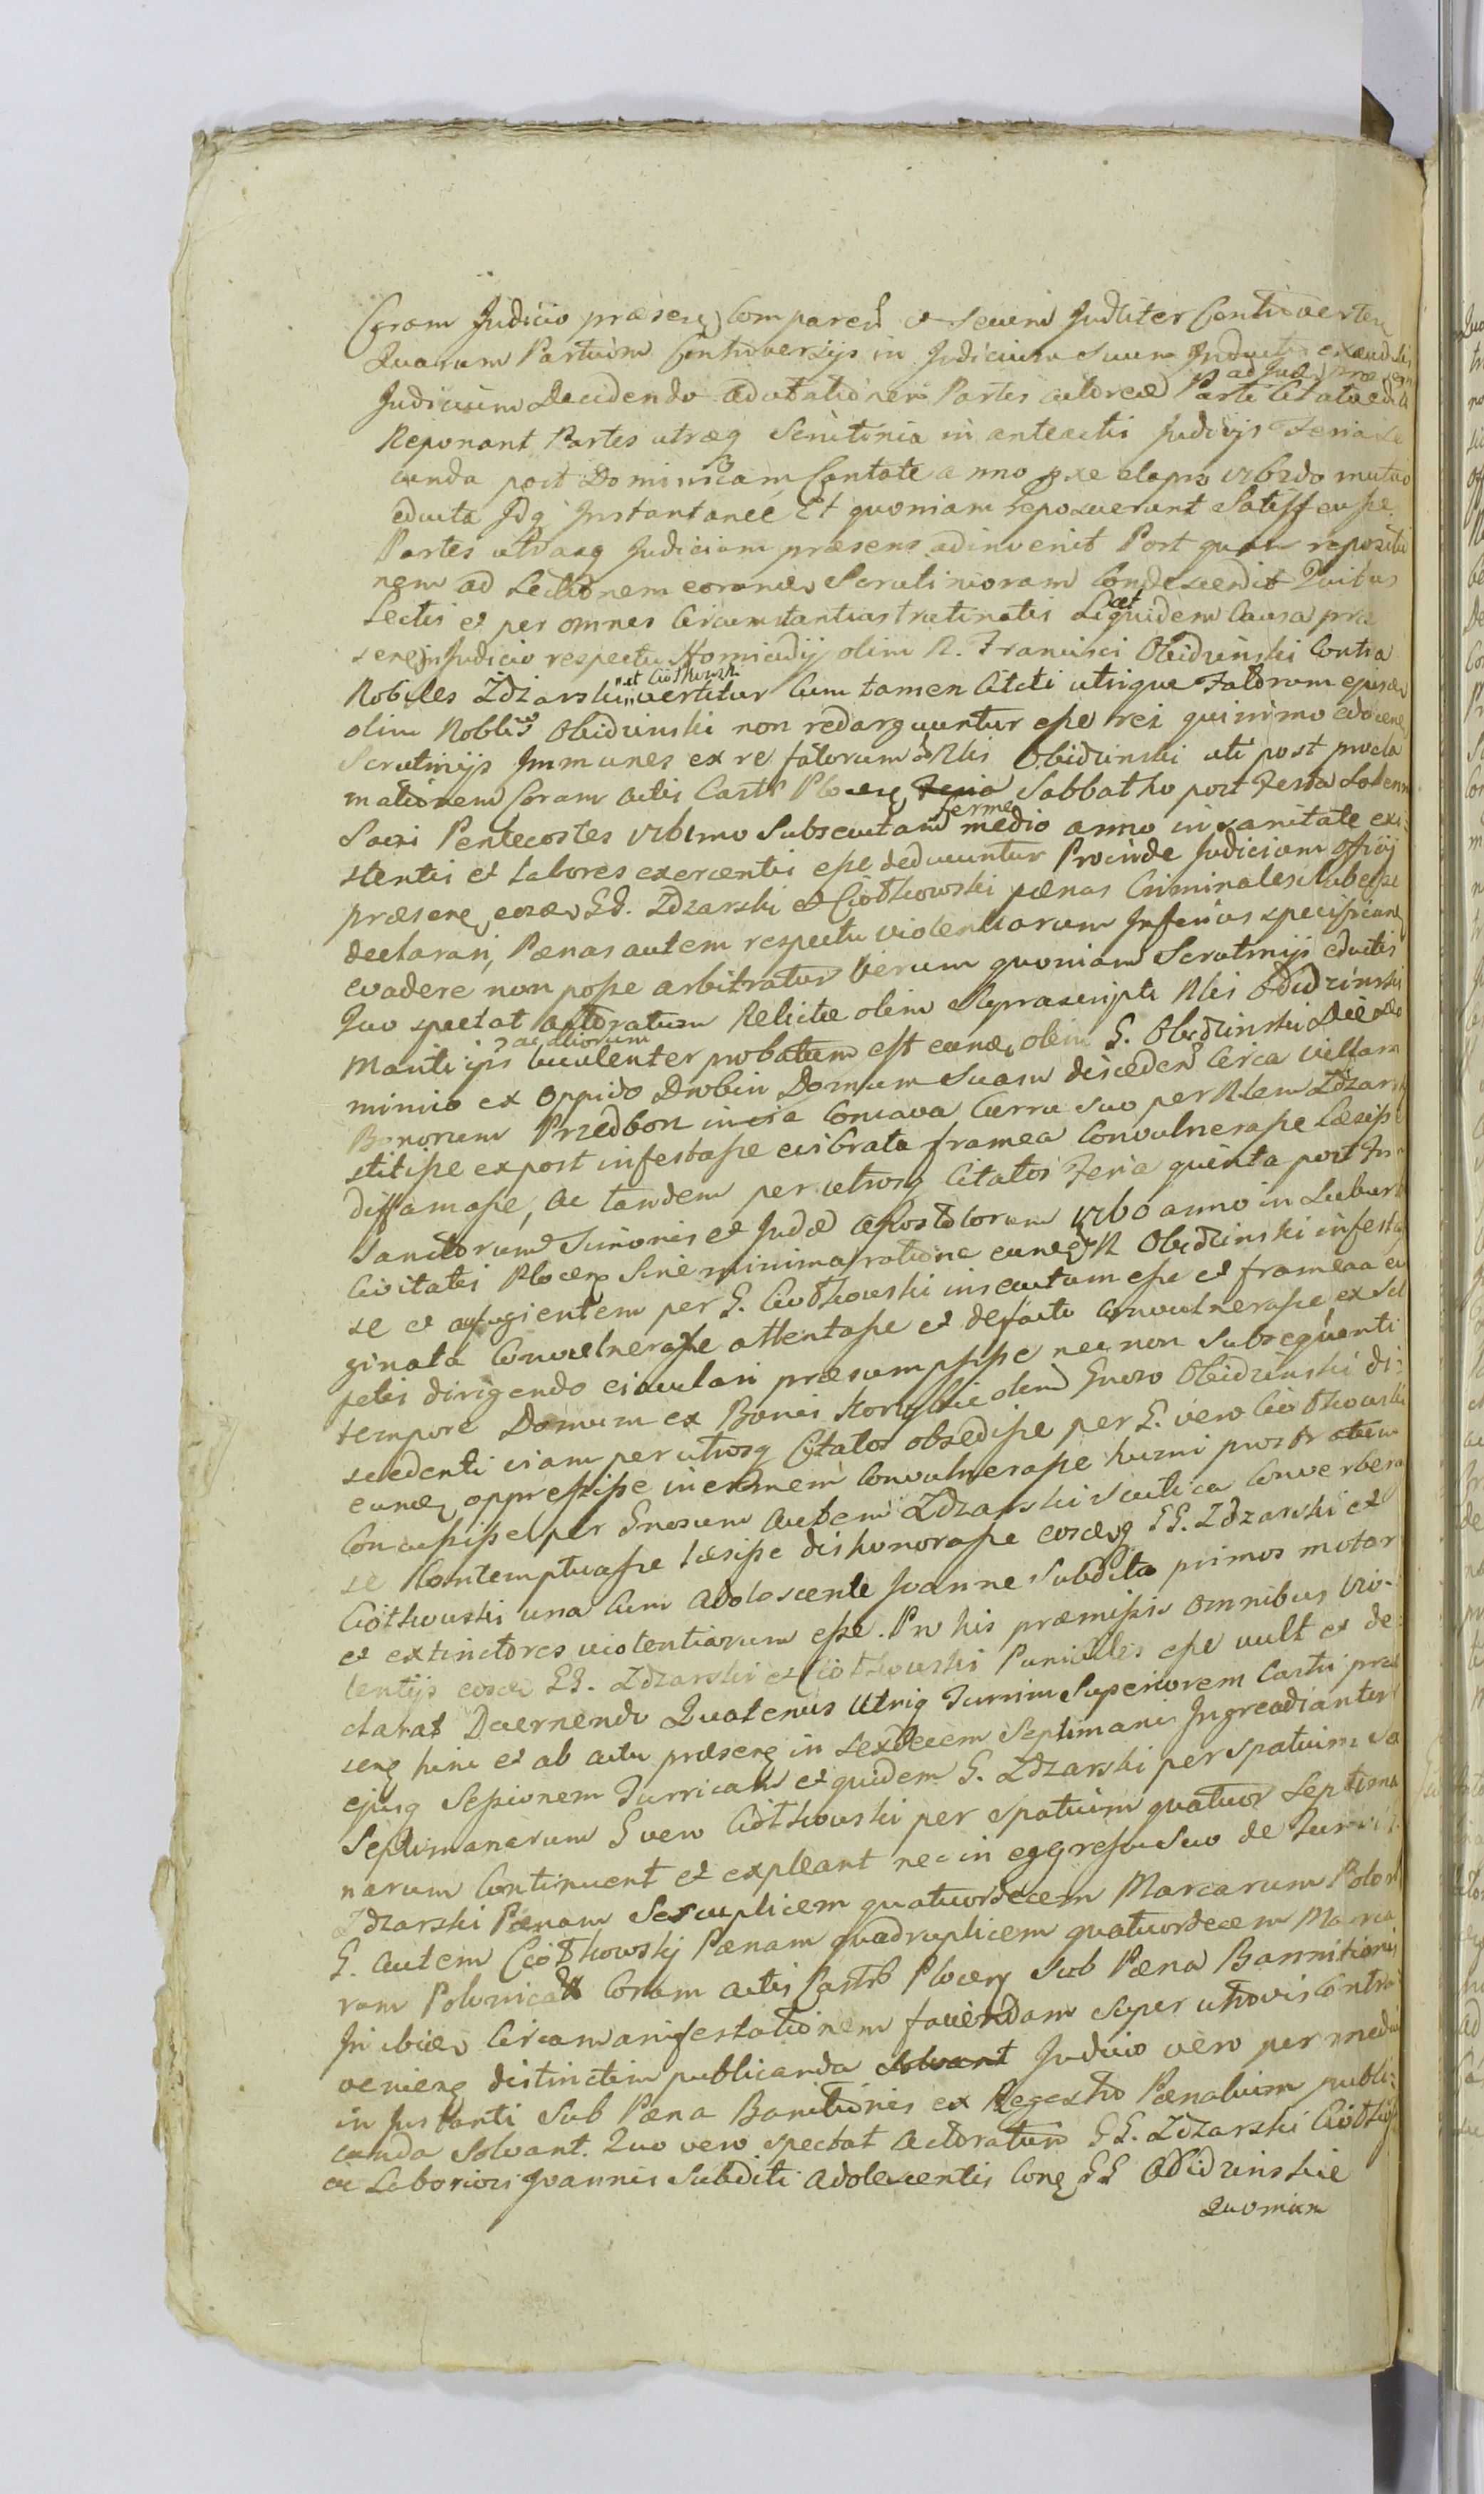 Coram Judicio præsenz Comparen et Secum Judtiter Controverten
Quarum Partium Controversijs in Judicium suum Inductis exaudi
Judicium Decidendo ad utationem Partis actoreæ ad Jud præsen Parti Citatæ
Reponant Partes utræq Scrutinia in anteactis Judicijs Feria Se
cunda post Dominicam Cantate anno pxe elapso 1762do mutuo
educta Idq Instantaneé Et quoniam reposuerunt Satisf ecisse
Partes utrasq Judicium præsens adinvenit Post quam repositio
nem ad Lectionem eorundem Scrutiniorum Condescendit Quibus
Lectis et per omnes Circumstantias trutinatis Licet quidem Causa præ
senq in Judicio respectu Homicidij olim N. Francisci Obidzinski Contra
Nobiles Zdzarski et Ciotkowski vertitur Cum tamen Citati utrique Fatorum ejusdem
olim Noblis Obidzinski non redarguuntur esse rei quinimo edocen
Scrutinijs Immunes ex re fatorum Nlis Obidzinski uti post procla
mationem Coram actis Castr Plocen Sabbatho post Festa Solenn
Sacri Pentecostes 1761mo Subsecutam ferme medio anno in sanitate exi-
stentis et Labores exercentis esse deducuntur Proinde Judicium officij
præsenq eosdem GG. Zdzarski et Ciotkowski pænas Criminales subesse
declarari, Pænas autem respectu violentiarum Inferius specifican
evadere non posse arbitratur Verum quoniam Scrutinijs eductis
Quo spectat actoratum Relictæ olim suprascripti Nlis Obidzinski
Mariti ips ac aliorum luculenter probatum est eundem olim G. Obidzinski Die Do
minico ex Oppido Drobin Domum Suam disceden Circa villam
Bonorum Przedbor in via Concava Curru suo per Nlem Zdzarski
stitisse ex post infestasse evibrata framea Convulnerasse Læsisse
diffamasse, ac tandem per utrosq Citatos Feria quinta post Fm
Sanctorum Simonis et Judæ Apostolorum 1760 anno in Suburb
Civitatis Plocen Sine minima ratione eundem N Obidzinski infestas
se et aufugientem per G. Ciotkowski insecutum esse et framea eva
ginata Convulnerasse attentasse et defacto Convulnerasse, ex Scl
petis dirigendo ejaculari præsumpsisse nec non subsequenti
tempore Domum ex Bonis Korzybie olim Gnoso Obidzinski di-
scedenti viam per utrosq Citatos obsedisse per G. vero Ciotkowski
eundem oppressisse inermem Convulnerasse humi prostratum
Concussisse per Gnosum autem Zdzarski scutica Converbera
se Contemptuasse Læsisse dishonorasse eosdemq GG. Zdzarski et
Ciotkowski una Cum Adoloscente Joanne Subdito primos motor
et extinctores violentiarum esse. Pro his præmissis omnibus vio-
lentijs eosdem GG. Zdzarski et Ciotkowski Puniibles esse vult et de-
clarat Decernendo Quatenus Utriq Turrim Superiorem Castri præ
senq hinc et ab actu præsenq in sexdecem Septimanis Ingrediantur
ejusq Sessionem Turricalem et quidem G. Zdzarski per spatium sex
Septimanarum G vero Ciotkowski per spatium quatuor Septima
narum Continuent et expleant nec in eggressu Suo de turri G.
Zdzarski Pænam Sescuplicem quatuordecem Marcarum Polon
G. autem Ciotkowskj Pænam quadruplicem quatuordecem Marca
rum Polonicalium Coram actis Castr Plocen sub Pæna Bannitionis
In ibidem Circa manifestationem faciendam super utrovis Contra
venienq distinctim publicanda solvant Judicio vero per medi
in Instanti sub Pæna Banitionis ex Regestro Pænalium publi-
canda Solvant. Quo vero spectat Actoratum GG. Zdzarski Ciotkows
ac Laboriosi Joannis Subditi Adolescentis Conq GG Obidzinskie
Quoniam